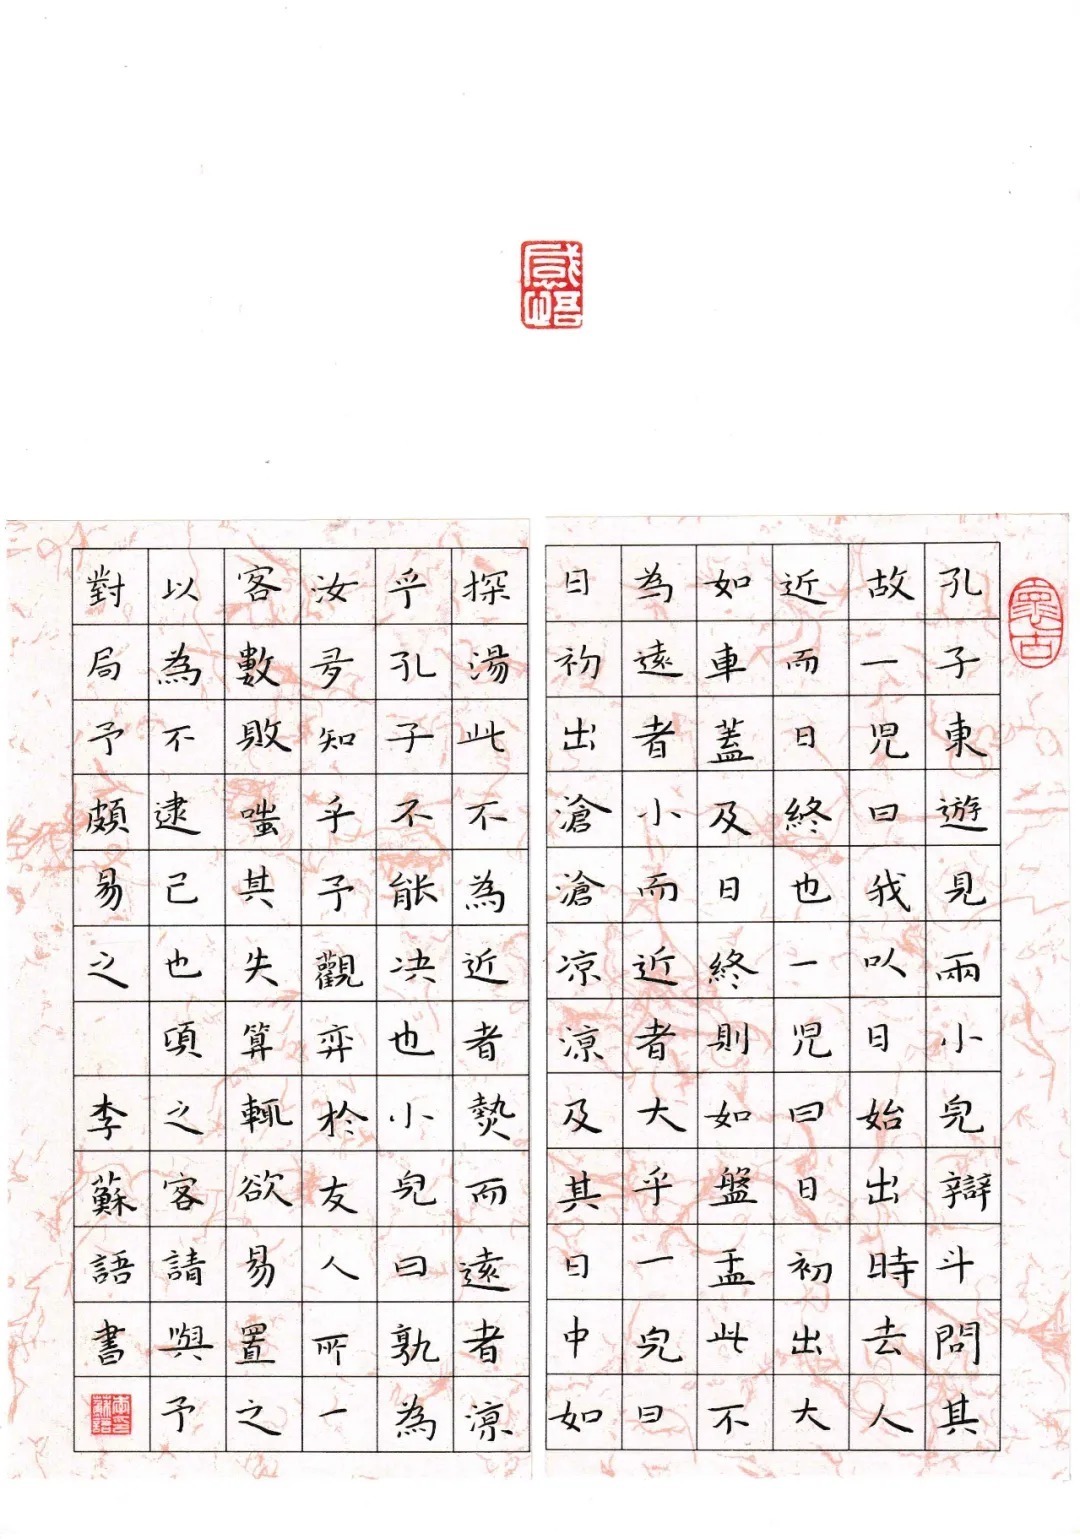 感悟
懷古
孔子東遊見兩小兒辯斗問其
故一児曰我以日始出時去人
近而日終也一児曰日初出大
如車蓋及日終則如盤盂此不
為遠者小而近者大乎一兒曰
日初出滄滄凉涼及其日中如
探湯此不為近者熱而遠者涼
乎孔子不能决也小兒曰孰為
汝多知乎予觀弈於友人所一
客數敗嗤其失算輒欲易置之
以為不逮己也頃之客請與予
對局予頗易之 李蘇語書